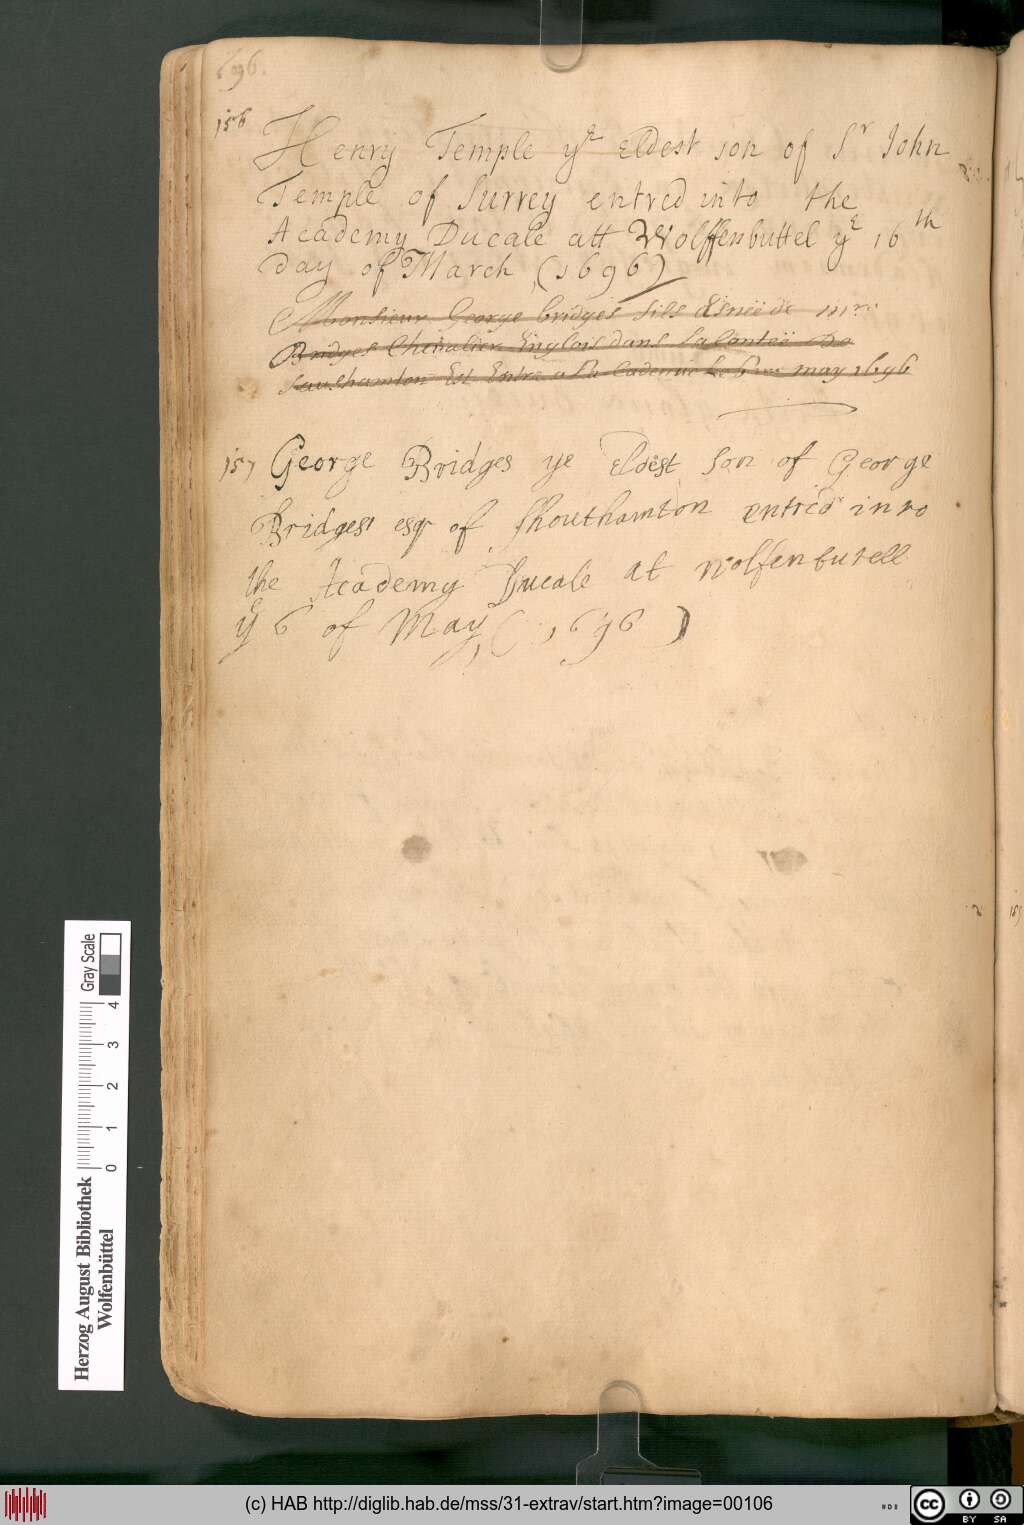 696.
156
Henry Temple yᵉ Eldest son of Sʳ John
Temple of Surrey entred into the
Academy Ducale att Wolffenbuttel yᵉ 16ᵗʰ
day of March (1696)
Monsieur George bridges fils Esnée de
Bridges Chevalier Englois dans la Contéë De
Southamton Est Entré a la Cademie Le 6ᵐᵉ may 1696
157 George Bridges ye Eldest Son of George
Bridges esqr of Shouthamton entred into
the Academy Ducale at Wolfenbutell
yᵉ 6 of May, (1696)
Herzog August Bibliothek
Wolfenbüttel
0 1 2 3 4
Gray Scale
(c) HAB http://diglib.hab.de/mss/31-extrav/start.htm?image=00106
cc BY SA